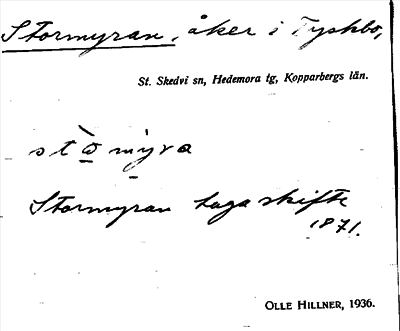 Stormyran, åker i Tyskbo,
St. Skedvi sn, Hedemora tg, Kopparbergs län.
Stormyran laga skifte
1871.
OLLE HILLNER, 1936.